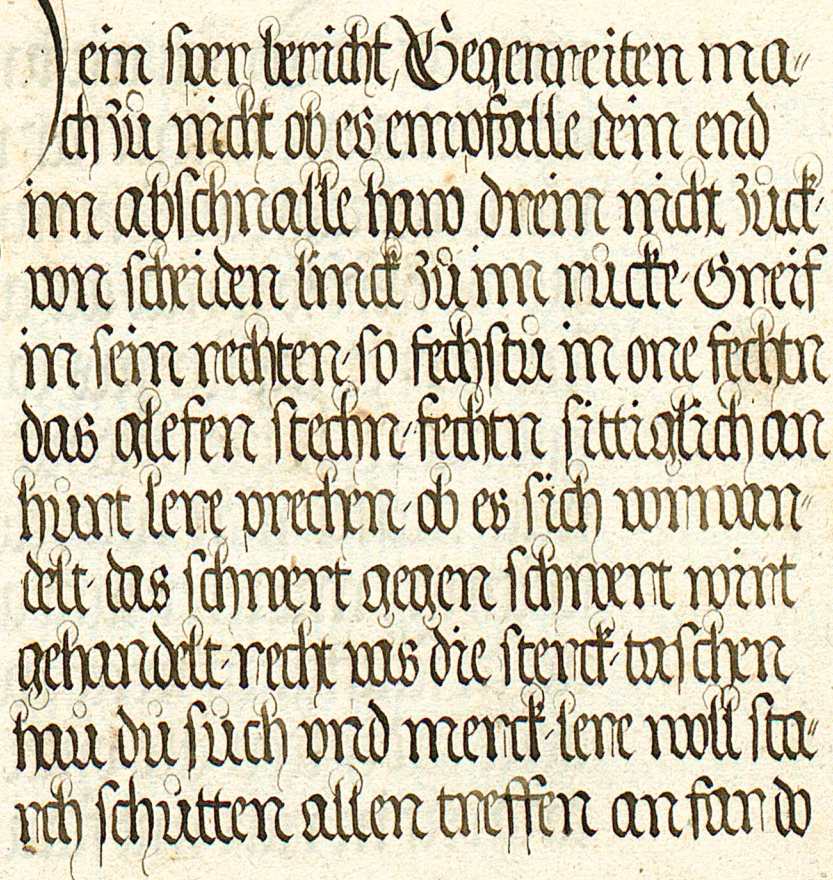 ein sper bericht, Gegenreiten ma=
ch zů nicht ob es empfalle dein end
im abschnalle haw drein nicht zůck·
von scheiden linck zů im růcke· Greif
in sein rechten· so fechstu in one fechtn
das glefen stechn· fechtn sittiglich an
hůrt lere prechen· ob es sich vorwan=
delt· das schwert gegen schwert wirt
gehandelt· recht vas die sterck· taschen
haů dů sůch vnd merck· lere woll sta=
rch schůtten allen treffen an far do